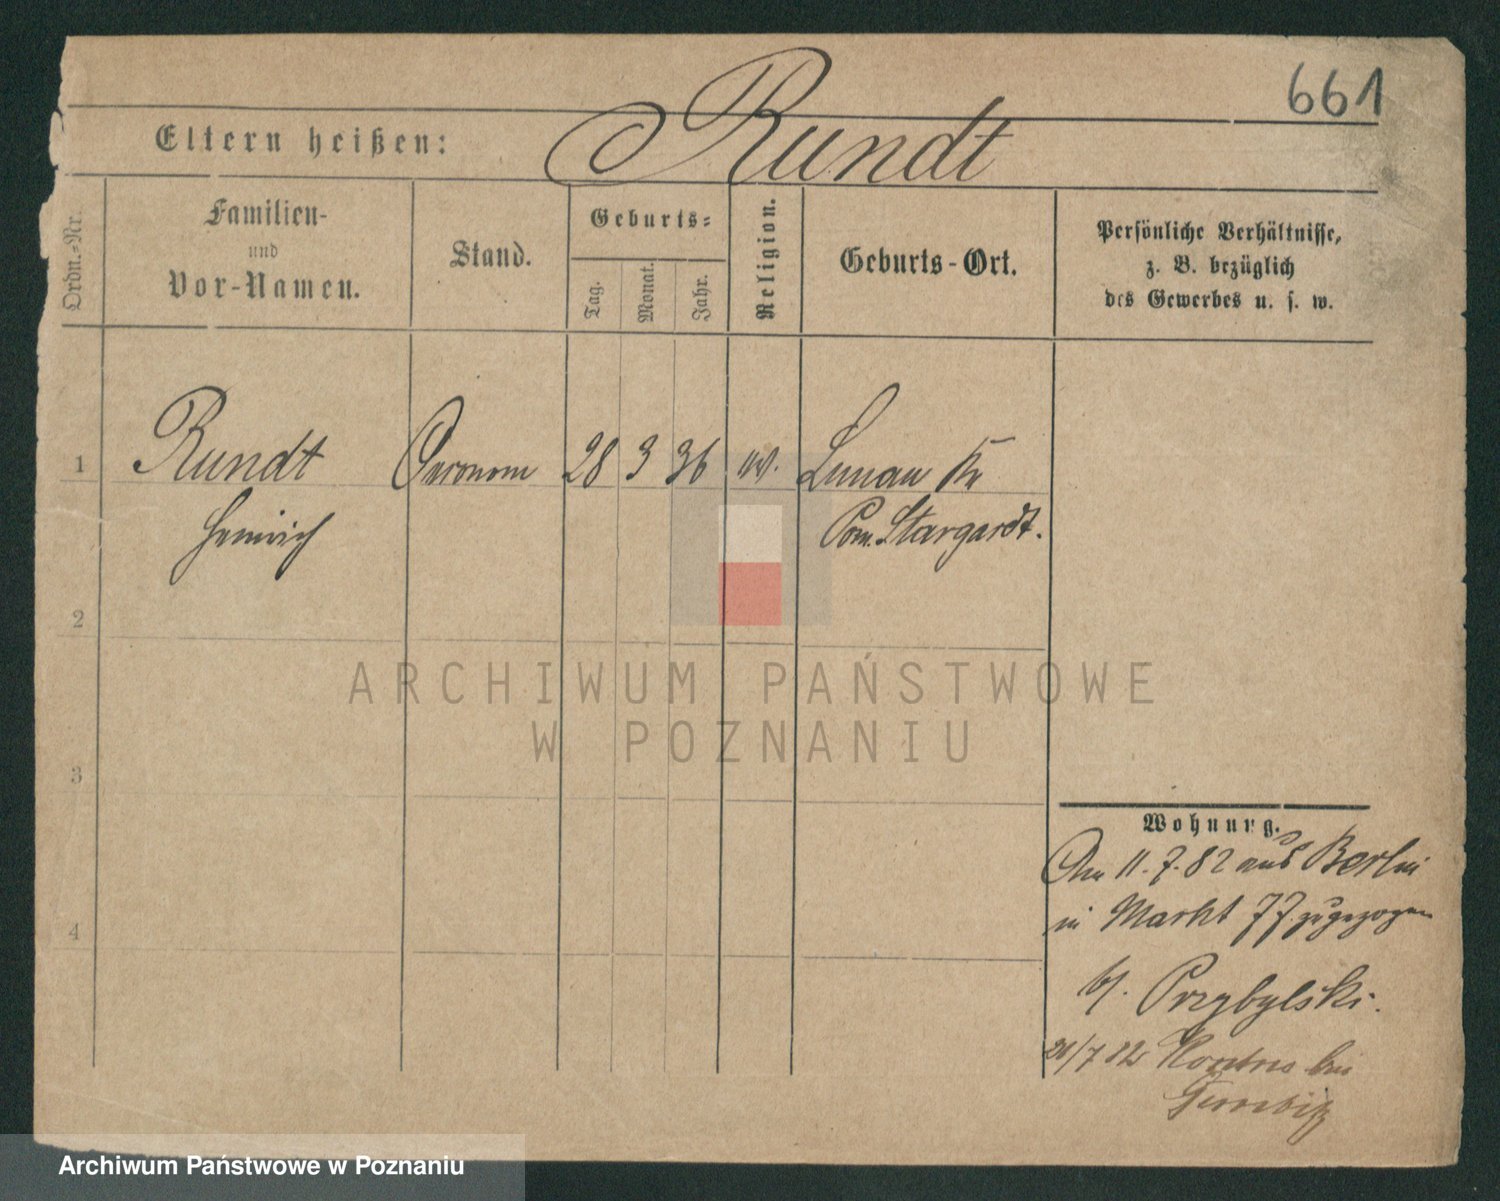 661
Eltern heißen: Rundt
Ordn.-Nr.
Familien-
und
Vor-Namen.
Stand.
Geburts-
Tag.
Monat.
Jahr.
Religion.
Geburts-Ort.
Persönliche Verhältnisse,
z. B. bezüglich
des Gewerbes u. s. w.
1 Rundt Oeconom 28 3 36 ev. Lunau Kr
Heinrich Pom. Stargardt.
2
3
4
Wohnung.
Am 11.7.82 aus Berlin
in Markt 77 zugezogen
bei Przybylski.
/7 82 bei
ARCHIWUM PAŃSTWOWE
W POZNANIU
Archiwum Państwowe w Poznaniu